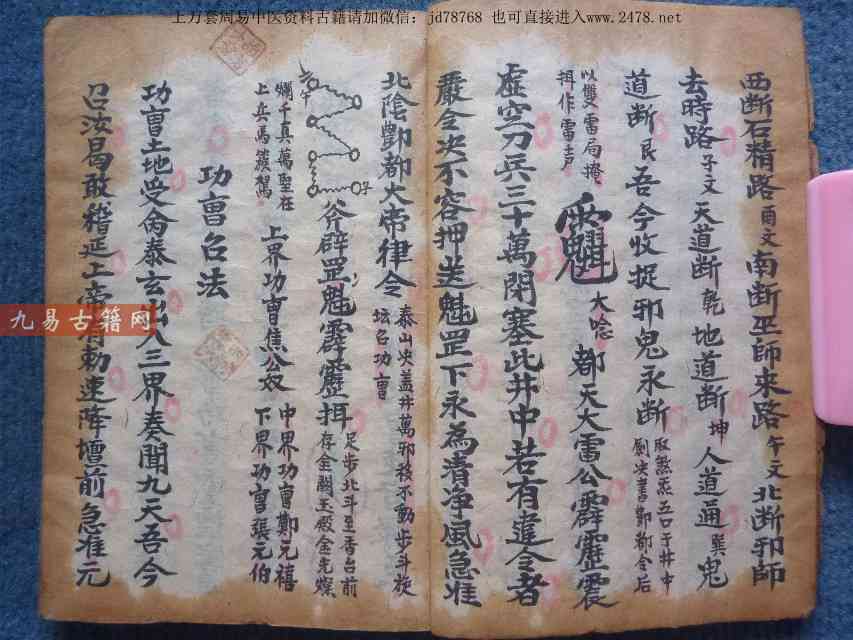 上万套周易中医资料古籍请加微信：jd78768 也可直接进入www.2478.net
西断石精路酉文南断巫師来路午文北断邪師
去時路子文天道断乾地道断坤人道通巽鬼
道断艮吾今收捉邪鬼永断取煞炁五口于井中
劍决書酆都令后
以雙雷局掩
揖作雷声
大唸都天大雷公霹靂震
虚空刀兵三十萬閉塞此井中若有違令者
嚴令决不容押送魁罡下永為清净風急准
北陰酆都大帝律令泰山决盖井萬邪移不動步斗旋
坛召功曹
斧辟罡魁霹靂揖足步北斗至香台前
存金闕玉殿金光燦
爛千真萬聖在
上兵馬簇擁
上界功曹焦公奴中界功曹鄭元禧
下界功曹張元伯
功曹召法
功曹土地受命泰玄出入三界奏聞九天吾今
召汝曷敢稽延上帝有勅速降壇前急准元
九易古籍网